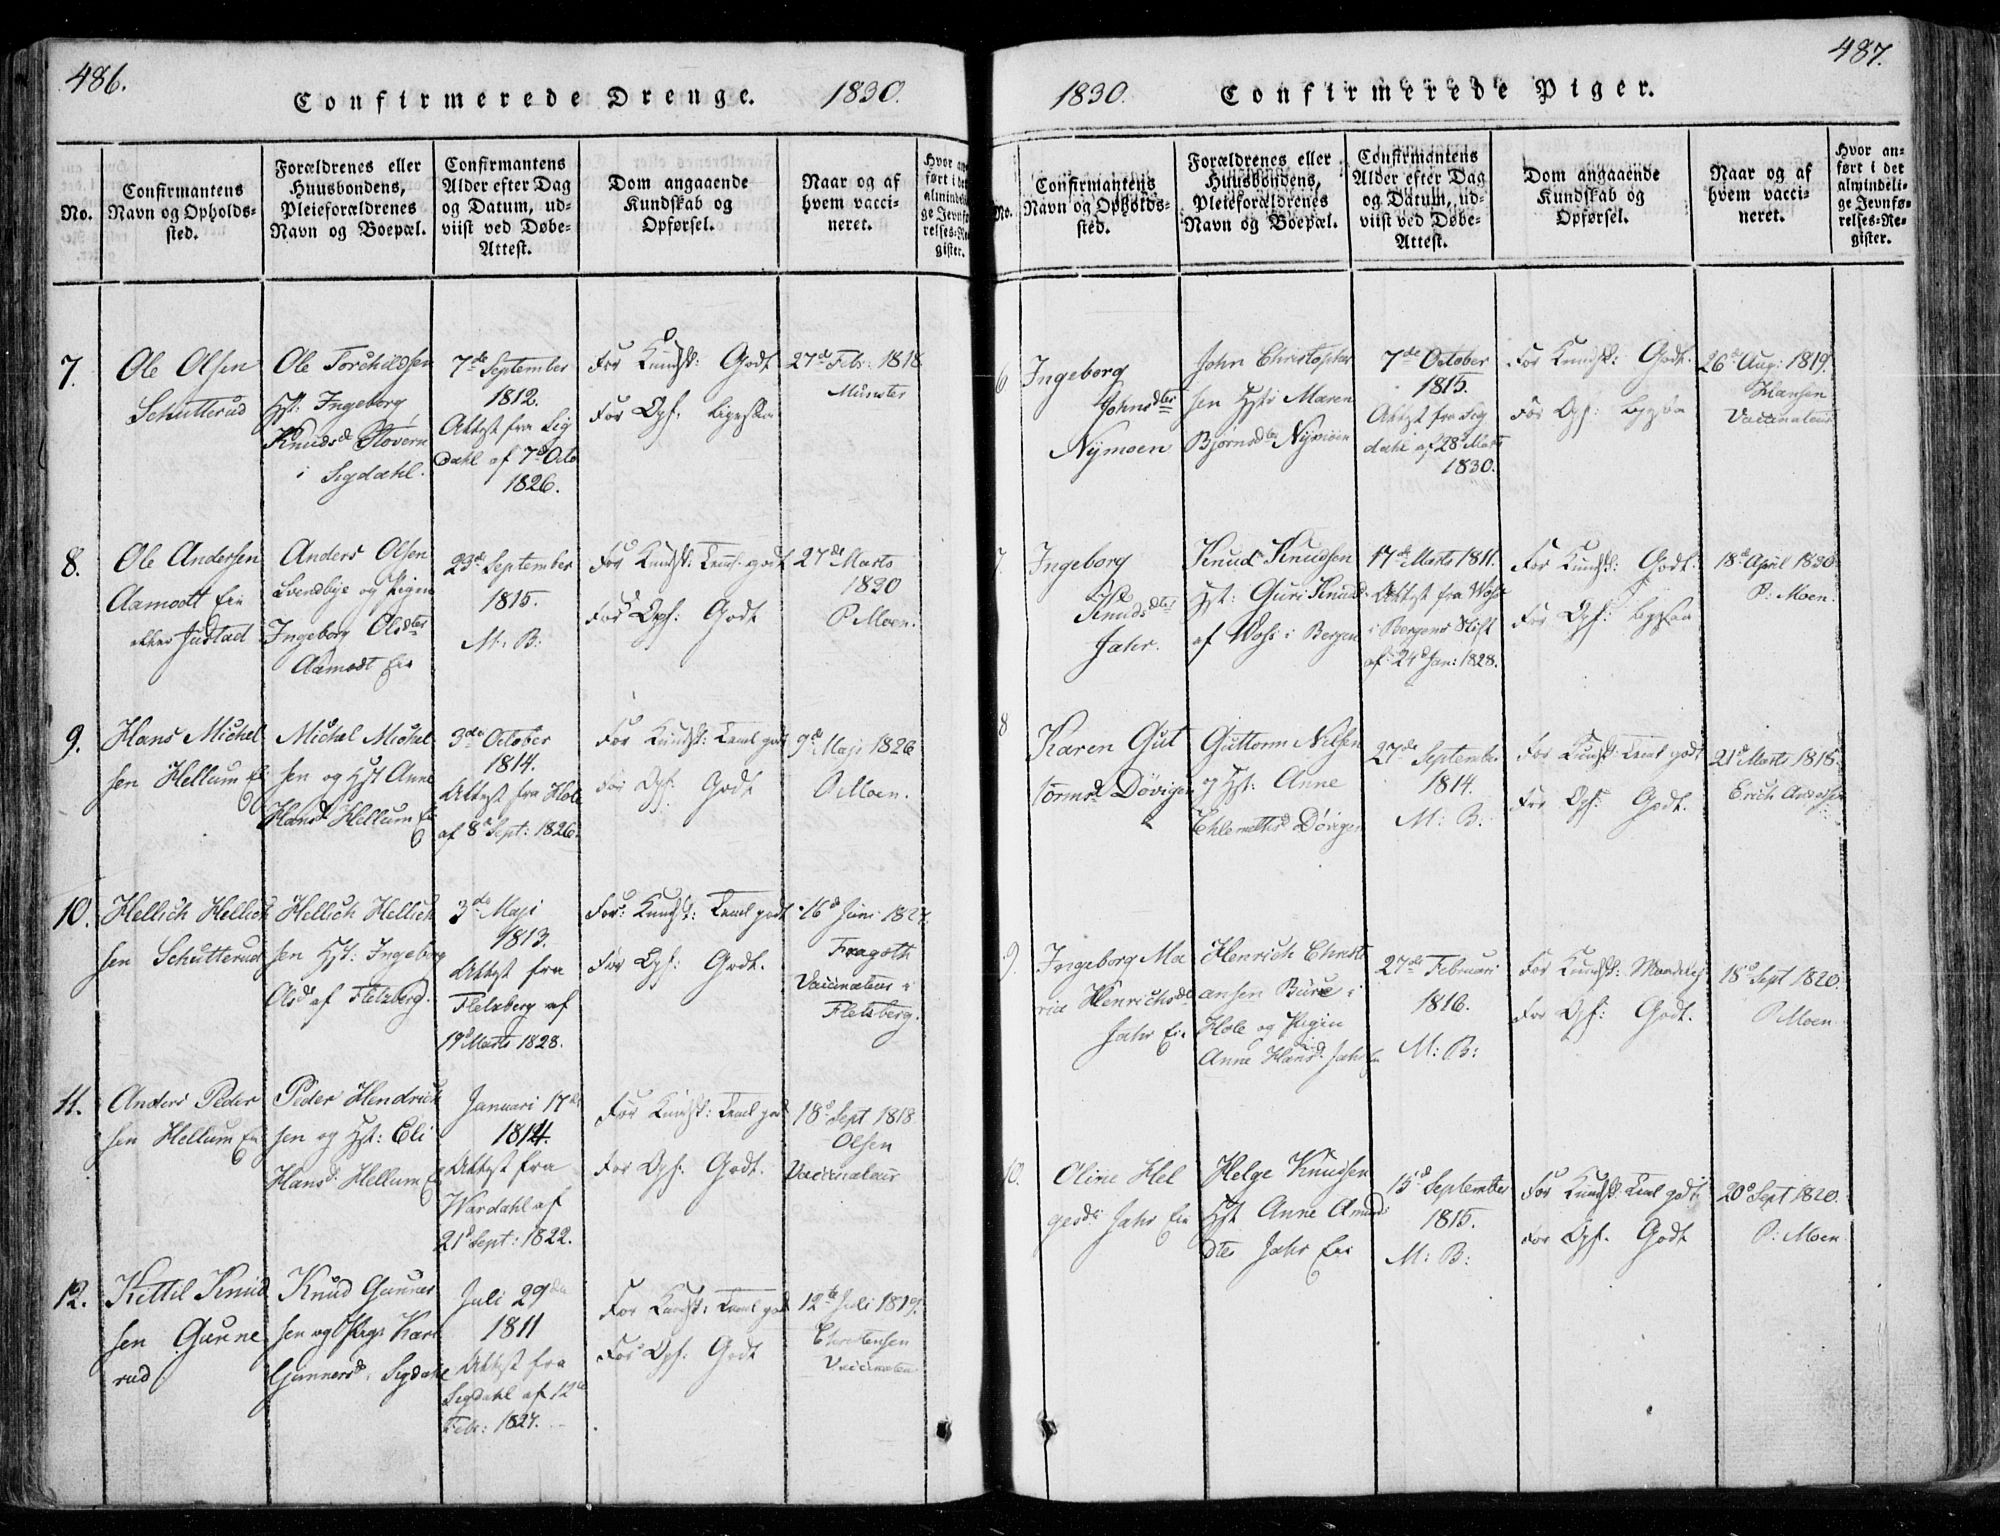 486.
Confirmerede Drenge.
1830.
No.
Confirmantens
Navn og Opholds-
sted.
Forældrenes eller
Huusbondens,
Pleieforældrenes
Navn og Boepæl.
Confirmantens
Alder efter Dag
og Datum, ud-
viist ved Døbe-
Attest.
Dom angaaende
Kundskab og
Opførsel.
Naar og af
hvem vacci-
neret.
Hvor an-
ført i det
almindeli-
ge Jevnfø-
relses-Re-
gister.
7.
Ole Olsen
Schutterud
Ole Torchildsen
Hst: Ingeborg
Knudsd
i Sigdahl.
7de September
1812.
Attest fra Sig
dahl af 7d Octo
1826.
For Kundsk: Godt
For Opf:
27d Feb: 1818.
Münster
8.
Ole Andersen
Aamodt Eie
Justad
Anders Olsen
Svendbye og Pigen
Ingeborg Olsdter
Aamodt Eie
23de September
1815.
M: B:
For Kundsk: Teml. godt
For Opf: Godt
27de Marts
1820
P. Moen.
9.
Hans Michel
sen Hellum Ei
Michel Michel
sen og Hst Anne
Hansd Hellum Ei
3die October
1814.
Attest fra Hole
af 8d Sept: 1826.
For Kundsk: Teml godt
For Opf: Godt
9d Maji 1826
P Moen.
10.
Hellich Hellich
sen Schutterud
Hellich Hellich
sen Hst: Ingeborg
Olsd af Flelsberg.
3de Maji
1813.
Attest fra
Flelsberg af
19d Marts 1828.
For Kundsk: Teml godt
For Opf: Godt.
16d Juni 1827.
Fragoth
Vaccinateur i
Flelsberg.
11.
Anders Peder
sen Hellum Eie
Peder Hendrich
sen og Hst: Eli
Hansd. Hellum E
Januari 17de
1814.
Attest fra
Wardahl af
21d Sept: 1822.
For Kundsk: Teml godt
For Opf: Godt.
18d Sept 1818
Olsen
Vaccinateur
12.
Kittil Knud
sen Gunne
rud
Knud Gunner
sen og Pige Kari
Gunnersd. Sigdahl
Juli 29de
1811
Attest fra
Sigdahl af 12te
Feb: 1827.
For Kundsk: Teml godt
For Opf: Godt
12te Juli 1819.
Christensen
Vaccinateur
487.
1830.
Confirmerede Piger.
No.
Confirmantens
Navn og Opholds-
sted.
Forældrenes eller
Huusbondens,
Pleieforældrenes
Navn og Boepæl.
Confirmantens
Alder efter Dag
og Datum, ud-
viist ved Døbe-
Attest.
Dom angaaende
Kundskab og
Opførsel.
Naar og af
hvem vacci-
neret.
Hvor an-
ført i det
almindeli-
ge Jevnfø-
relses-Re-
gister.
6
Ingeborg
Johnsdter
Nijmoen
John Christopher
sen Hst: Maren
Bjørnsdter Nijmoen
7de October
1815.
Attest fra Sig
dahl af 28d Marts
1830.
For Kundsk: Godt.
For Opf:
26d Aug: 1819.
Hansen
Vaccinateur
7.
Ingeborg
Knudsdter
Jahr.
Knud Knudsen
Hst: Guri Knuds
af Wohs i Bergen
17de Marts 1811.
Attest fra Wohs
i Bergens Stift
af 24d Jan: 1828.
For Kundsk: Godt.
For Opf:
18d April 1830.
P: Moen.
8
Karen Gut
tormsd Døvigen
Guttorm Nilsen
og Hst: Anne
Døvigen
27de September
1814.
M: B:
For Kundsk: Teml godt
For Opf: Godt.
21d Marts 1818.
Erich Andersen
9.
Ingeborg Ma
ria Henrichsdr
Jahr Ei.
Henrich Christi
ansen Bure i
Hole og Pigen
Anne Hansd. Jahr Ei
27de Februari
1816.
M: B:
For Kundsk: Maadelig
For Opf: Godt.
18d Sept 1820.
P Moen
10.
Oline Hel
gesdr Jahr Eie
Helge Knudsen
Hst Anne Amund
dter Jahr Eie
15d September
1815.
M: B:
For Kundsk: Teml godt
For Opf. Godt
20d Sept 1820.
P: Moen